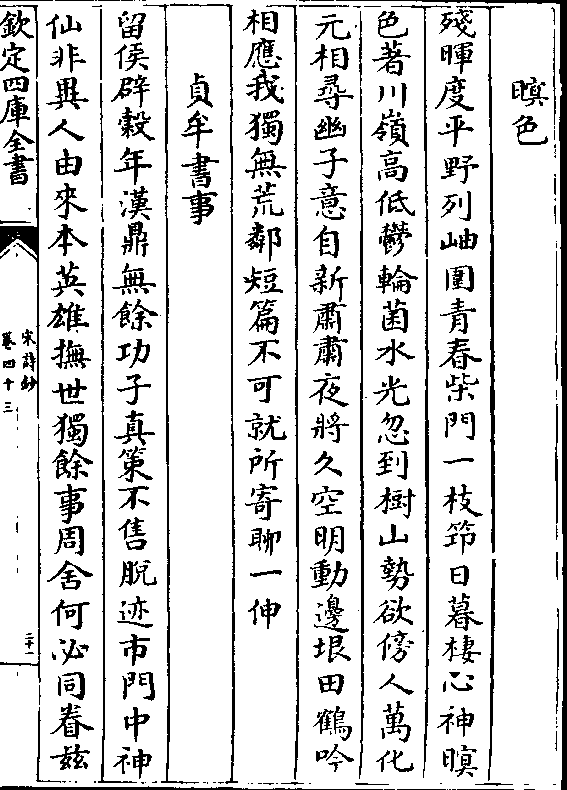 暝色
殘暉度平野列岫圍青春柴門一枝筇日暮棲心神暝
色著川嶺高低鬱輪菌水光忽到樹山勢欲傍人萬化
元相尋幽子意自新肅肅夜將久空明動邊垠田鶴吟
相應我獨無荒鄰短篇不可就所寄聊一伸
貞牟書事
留侯辟穀年漢鼎無餘功子真策不售脫迹市門中神
仙非異人由來本英雄撫世獨餘事周舍何必同眷茲
欽定四庫全書
宋詩鈔
卷四十三
二十二